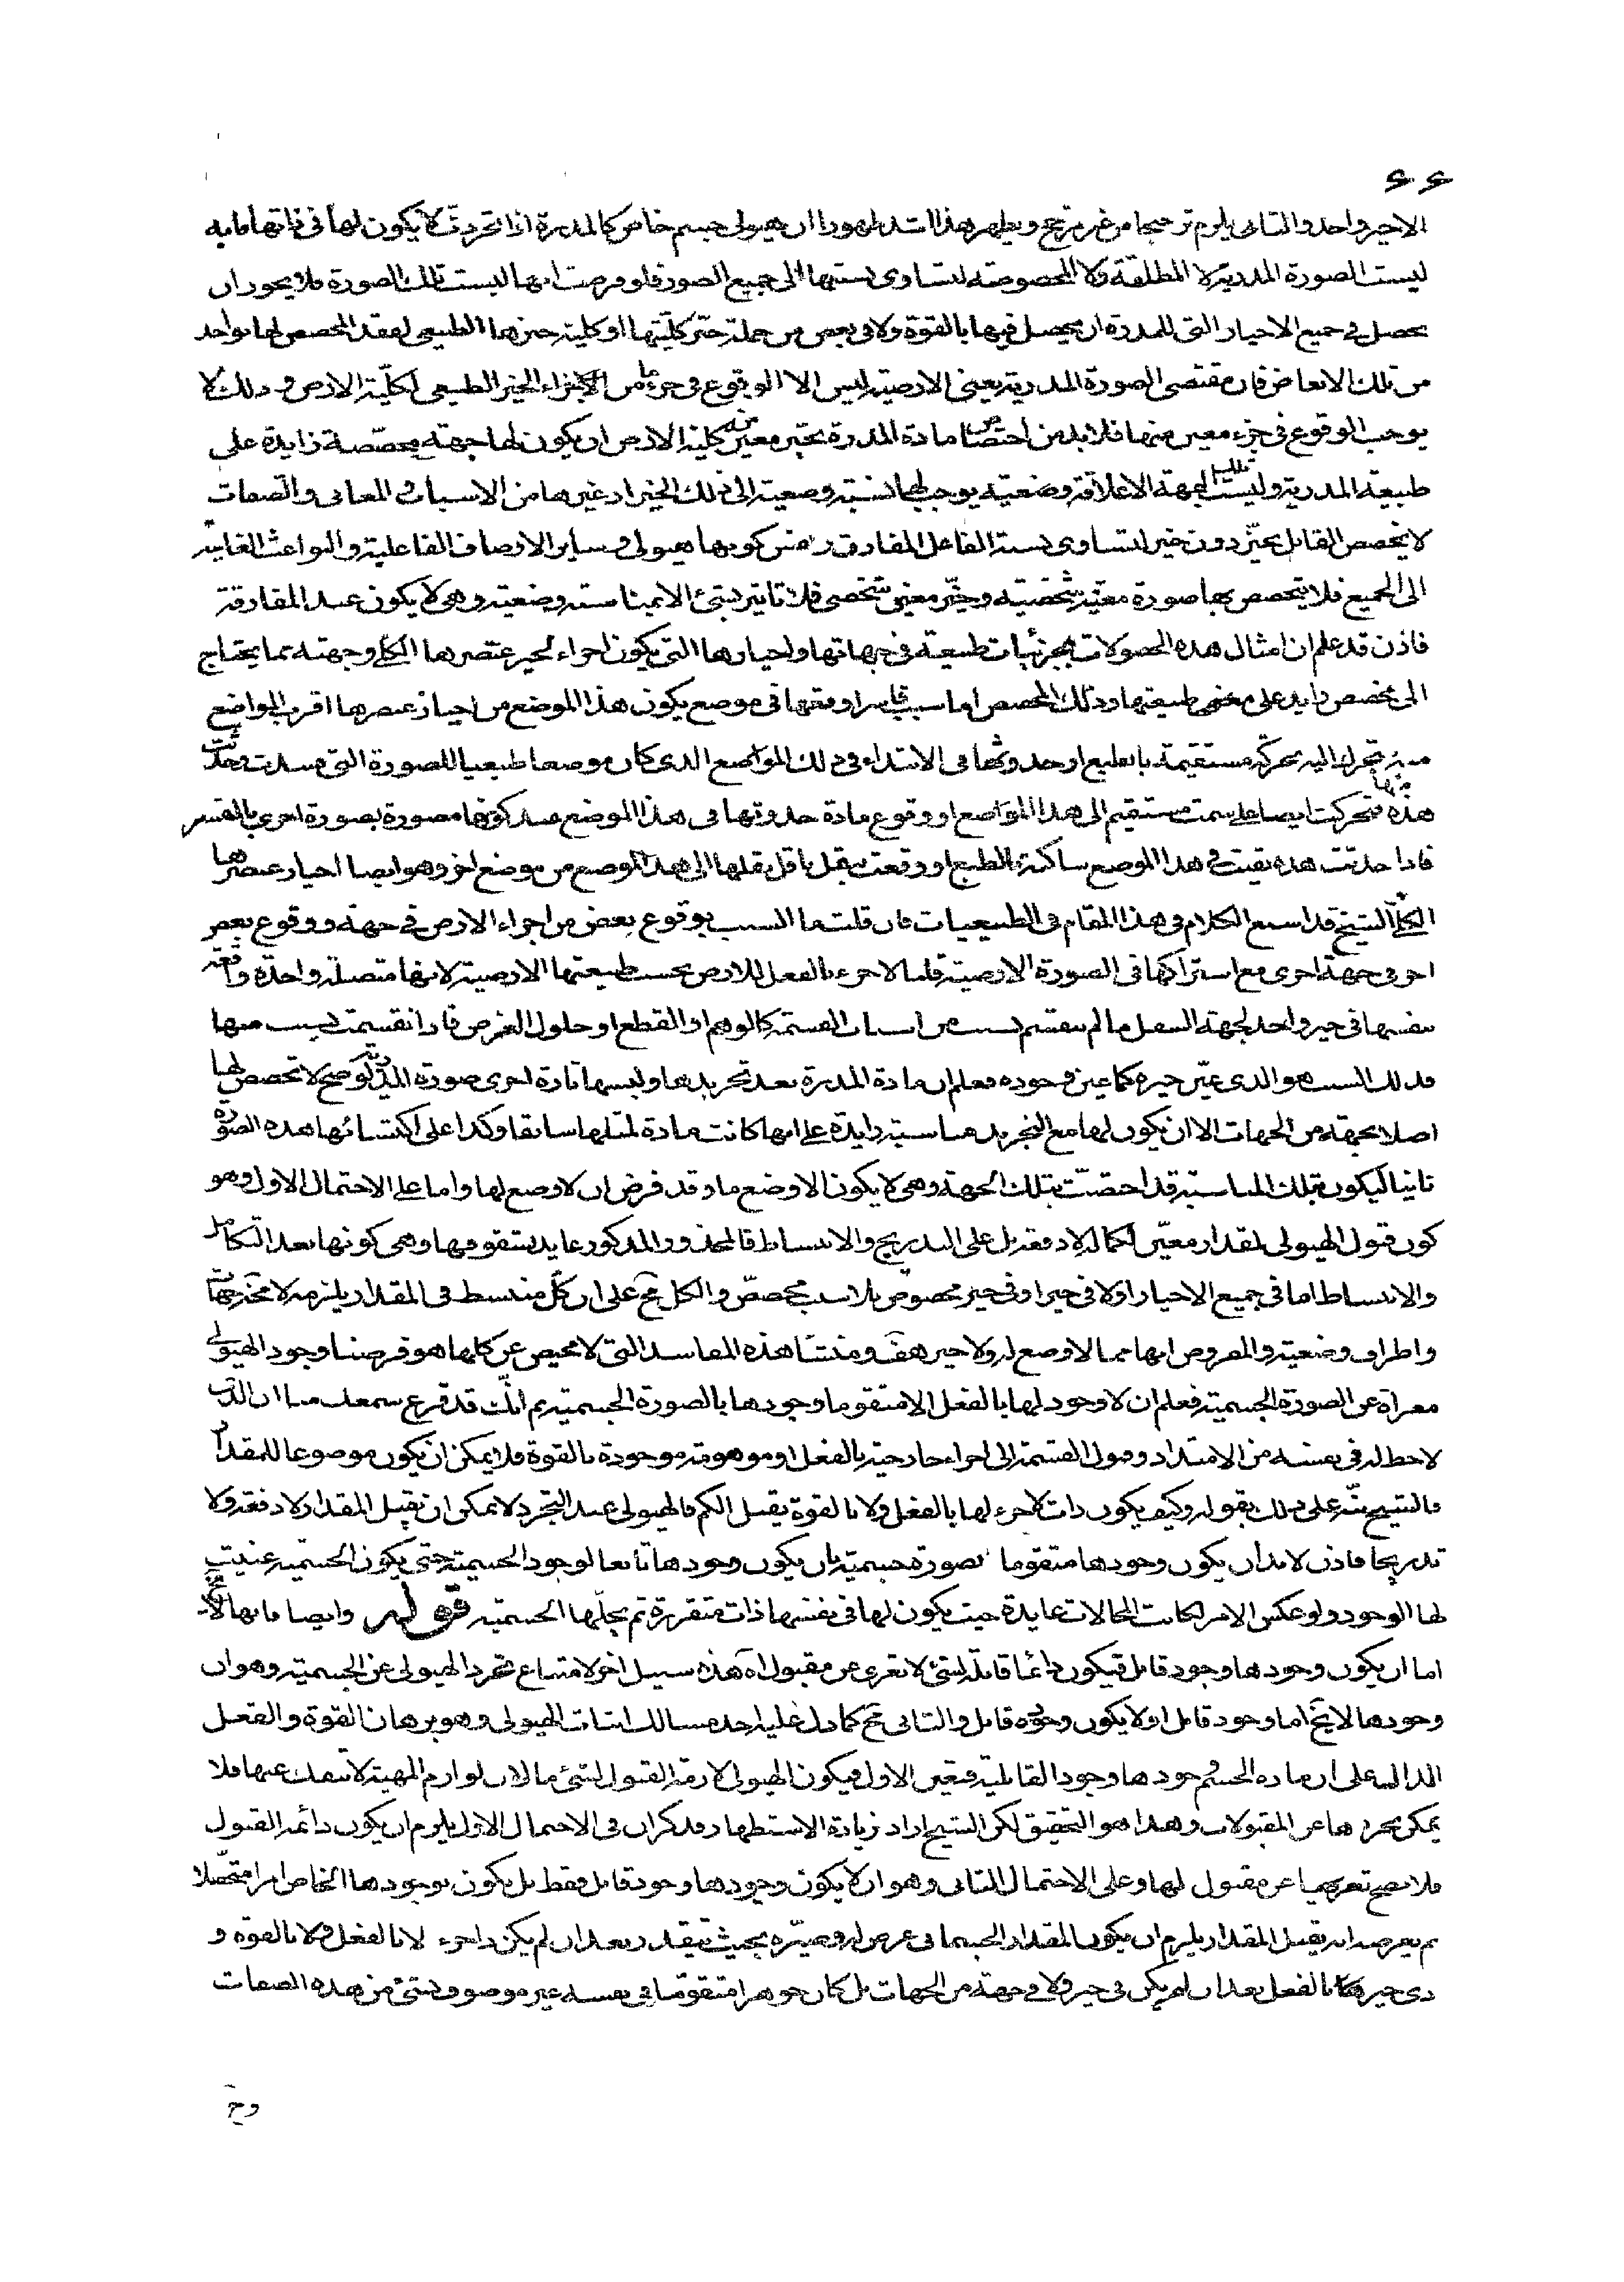 ٦٦
الاحير واحد والثانى يلزم ترجيحا من غير مرجح ويظهر هذا اشد ظهورا ان هيولى جسم خاص كالمدرة اذا تجردت لا يكون لها فى ذاتها ما به
ليست الصورة المدرية لا المطلقة ولا المخصوصة لتساوى نسبتها الى جميع الصور فلو فرضت انها لبست تلك الصورة فلا يجوز ان
يحصل فى جميع الاحياز التى للمدرة ان يحصل فيها بالقوة ولا فى بعض من جملة حيّز كلّيتها او كلية حيزها الطبيعى لفقد المخصص لها بواحد
من تلك الابعاض فان مقتضى الصورة المدرية يعنى الارضية ليس الا الوقوع فى جزء ما من الاجزاء الحيز الطبيعى لكلّية الارض و ذلك لا
يوجب الوقوع فى جزء معين منها فلا بد من اختصاص مادة المدرة بحيّز معيّن من كلية الارض ان يكون لها جهة مخصّصة زايدة على
طبيعة المدرية وليست تلك الجهة الا علاقة وضعية يوجب لها نسبة وضعية الى ذلك الحيز اذ غيرها من الاسباب والمعانى والصفات
لا يخصص القابل بحيّز دون حيز لتساوى نسبة الفاعل المفارق ونفس كونها هيولى و ساير الاوصاف الفاعلية والبواعث الغاية
الى الجميع فلا يتخصص بها صورة معيّنة شخصية وحيّز معيّن شخصى فلا تاثير لشئ الا بمناسبة وضعية وهى لا يكون عند المفارقة
فاذن قد علم ان امثال هذه الحصولات لجزئيات طبيعة فى جهاتها واحيازها التى يكون اجزاء لحيز عنصرها الكلى وجهته مما يحتاج
الى مخصص زايد على معنى طبيعتها وذلك المخصص اما سبب قاسر اوقعها فى موضع يكون هذا الموضع من احياز عنصرها اقرب المواضع
منه تتحرك اليه بحركة مستقيمة بالطبع او حدوثها فى الابتداء فى ذلك الموضع الذى كان موضعا طبيعيا للصورة التى فسدت وحدثت
منها
هذه فتحركت ايضا على سمت مستقيم الى هذا الموضع او وقوع مادة حدوثها فى هذا الموضع عند كونها مصورة بصورة اخرى بالقسر
فاذا حدثت هذه بقيت فى هذا الموضع ساكنة بالطبع او وقعت بنقل ناقل نقلها الى هذا الموضع من موضع اخر وهو ايضا احياز عنصرها
الكلّى الشيخ قد اسمع الكلام فى هذا المقام فى الطبيعيات فان قلت ما السبب بوقوع بعض من اجزاء الارض فى جهة ووقوع بعض
اخر فى جهة اخرى مع اشتراكها فى الصورة الارضية قلنا لا جزء بالفعل للارض بحسب طبيعتها الارضية لانها متصلة واحدة واقعة
بنفسها فى حيز واحد لجهة السفل ما لم ينقسم بسبب من اسباب القسمة كالوهم او القطع او حلول العرض فاذا انقسمت بسبب منها
فذلك السبب هو الذى عيّن حيزه كما عين وجوده فعلم ان مادة المدرة بعد تجريدها ولبسها تارة اخرى صورة المدرية لو صح لا تخصص لها
اصلا بجهة من الجهات الا ان يكون لها مع التجريد مناسبة زايدة على انها كانت مادة لمثلها سابقا وكذا على اكتسائها هذه الصورة
ثانيا ليكون بتلك المناسبة قد اختصّت بتلك الجهة وهى لا يكون الا وضع ما وقد فرض ان لا وضع لها واما على الاحتمال الاول وهو
كون قبول الهيولى لمقدار معيّن لكماله لا دفعة بل على التدريج والانبساط فالمحذور المذكور عايد بشقوقها وهى كونها بعد التكامل
والانبساط اما فى جميع الاحياز اولا فى حيز او فى حيز مخصوص بلا سبب مخصّص والكل مح على ان كل منبسط فى المقدار يلزمه لا محة جهات
واطراف وضعية والمفروض انها مما لا وضع له ولا حيز هف ومنشا هذه المفاسد التى لا محيص عن كلها هو فرضنا وجود الهيولى
معراة عن الصورة الجسمية فعلم ان لا وجود لها بالفعل الا متقوما وجودها بالصورة الجسمية ثم انّك قد قرع سمعك منا ان الذى
لا حظ له فى نفسه من الامتداد وقبول القسمة الى اجزاء خارجية بالفعل او موهومة موجودة بالقوة فلا يمكن ان يكون موضوعا للمقدار
فالشيخ نبّه على ذلك بقوله وكيف يكون ذات لا جزء لها بالفعل ولا بالقوة يقبل الكم فالهيولى عند التجرد لا يمكن ان يقبل المقدار لا دفعة ولا
تدريجا فاذن لا بد ان يكون وجودها متقوما بصورة جسمية بان يكون وجودها تابعا لوجود الجسمية حتى يكون الجسمية عنيت
لها الوجود ولو عكس الامر لكانت المحالات عايدة حيث يكون لها فى نفسها ذات متقررة ثم يحلّها الجسمية قوله وايضا فانها لا يخ
اما ان يكون وجودها وجود قابل فيكون دائما قابلة لشئ لا تعرى عن مقبوله اه هذه سبيل اخر لامتناع تجرد الهيولى عن الجسمية وهو ان
وجودها لا يخ اما وجود قابل او لا يكون وجوده قابل والثانى مح كما دل عليه احد مسالك اثبات الهيولى وهو برهان القوة والفعل
الدالة على ان مادة الجسم وجودها وجود القابلية فتعين الاول فيكون الهيولى لازمة القبول لشئ ما لان لوازم المهية لا تنفك عنها فلا
يمكن تجردها عن المقبولات وهذا هو التحقيق لكن الشيخ اراد زيادة الاستظهار فذكر ان فى الاحتمال الاول يلزم ان يكون دائمة القبول
فلا يصح تعريها عن مقبول لها وعلى الاحتمال الثانى وهو ان لا يكون وجودها وجود قابل فقط بل يكون بوجودها الخاص امرا متحصّلا
ثم يعرضه انه يقبل المقدار يلزم ان يكون المقدار الجسمانى عرض له وصيّره بحيث يتقدر بعد ان لم يكن ذا جزء لا بالفعل ولا بالقوة و
ذى حيز بالفعل بعد ان لم يكن فى حيز ولا فى جهة من الجهات بل كان جوهرا متقوّما فى نفسه غير موصوف بشئ من هذه الصفات
وح